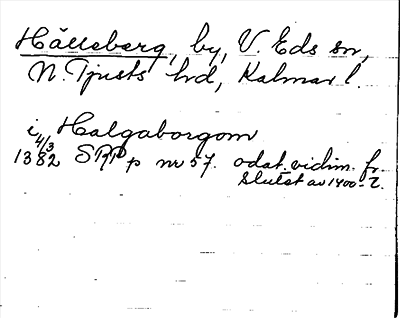 Hälleberg, by, V. Eds sn,
N. Tjusts hd, Kalmar l.
i Halgaborgom
4/3
1382 SRAP p nr 57. odat. vidim. fr.
slutet av 1400-t.